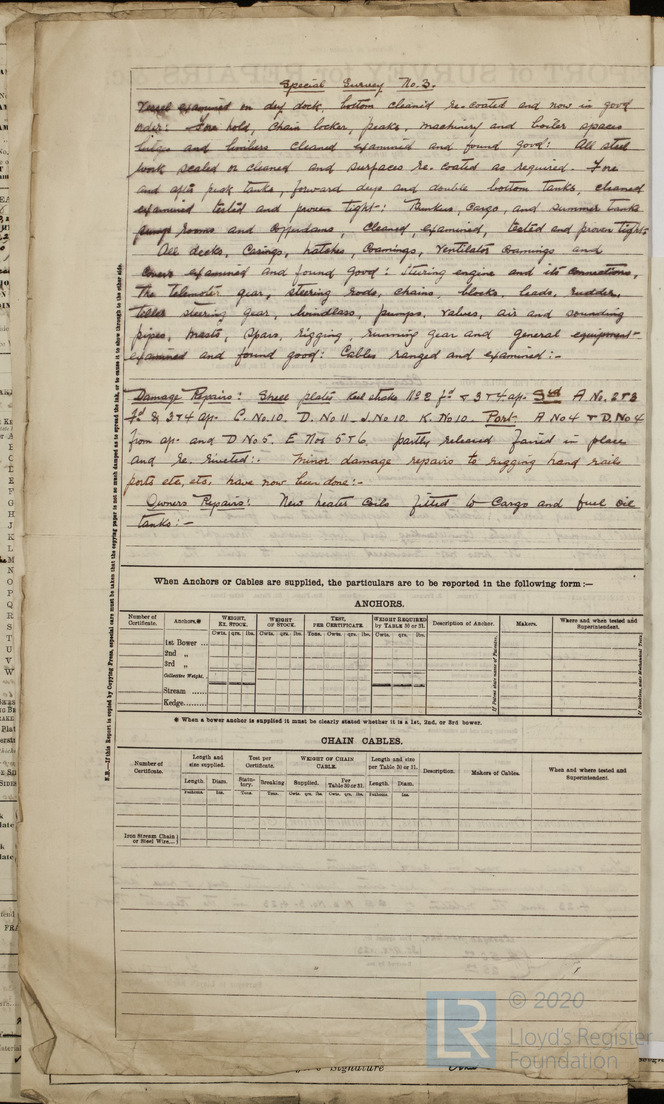 Special Survey No. 3.
Vessel examined on dry dock, bottom cleaned re-coated and now in good
order: Fore hold, chain locker, peaks, machinery and boiler spaces
bilges and limbers cleaned examined and found good: All steel
work scaled or cleaned and surfaces re-coated as required. Fore
and after peak tanks, forward deeps and double bottom tanks, cleaned
examined tested and proven tight: Bunkers, Cargo, and summer tanks
pump rooms and cofferdams, cleaned, examined, tested and proven tight:
All decks, Casings, hatches, Coamings, Ventilator Coamings and
covers examined and found good: Steering engine and its connections,
The telemotor gear, steering rods, chains, blocks, leads, rudder,
tiller steering gear, windlass, pumps, valves, air and sounding
pipes, masts, spars, rigging, running gear and general equipment
examined and found good: Cables ranged and examined:-
Damage Repairs: Shell plates keel strake No 2 fd & 3 & 4 ap. Stbd A No. 2 & 3
fd & 3 & 4 ap. C. No. 10. D. No 11. J. No 10. K. No 10. Port. A No 4 & D. No 4
from ap. and D No 5. E Nos 5 & 6. partly released faired in place
and re-riveted:- Minor damage repairs to rigging hand rails
ports etc, etc, have now been done:-
Owners Repairs: New heater coils fitted to Cargo and fuel oil
tanks:-
N.B.—If this Report is copied by Copying Press, especial care must be taken that the copying paper is not so much damped as to spread the ink, or to cause it to show through to the other side.
When Anchors or Cables are supplied, the particulars are to be reported in the following form :—
ANCHORS.
Number of Certificate. Anchors.* WEIGHT, EX. STOCK. WEIGHT OF STOCK. TEST, PER CERTIFICATE. WEIGHT REQUIRED by TABLE 30 or 31. Description of Anchor. Makers. Where and when tested and Superintendent.
Cwts. qrs. lbs. Cwts. qrs. lbs. Tons. Cwts. qrs. lbs. Cwts. qrs. lbs.
1st Bower ...
2nd „
3rd „
Collective Weight.
Stream ......
Kedge.......
* When a bower anchor is supplied it must be clearly stated whether it is a 1st, 2nd, or 3rd bower.
CHAIN CABLES.
Number of Certificate. Length and size supplied. Test per Certificate. WEIGHT OF CHAIN CABLE. Length and size per Table 30 or 31. Description. Makers of Cables. When and where tested and Superintendent.
Length. Diam. Statutory. Breaking Supplied. Per Table 30 or 31. Length. Diam.
Fathoms. Ins. Tons. Tons. Cwts. qrs. lbs Cwts. qrs. lbs. Fathoms. Ins.
Iron Stream Chain or Steel Wire...
Signature
LR
© 2020
Lloyd's Register
Foundation